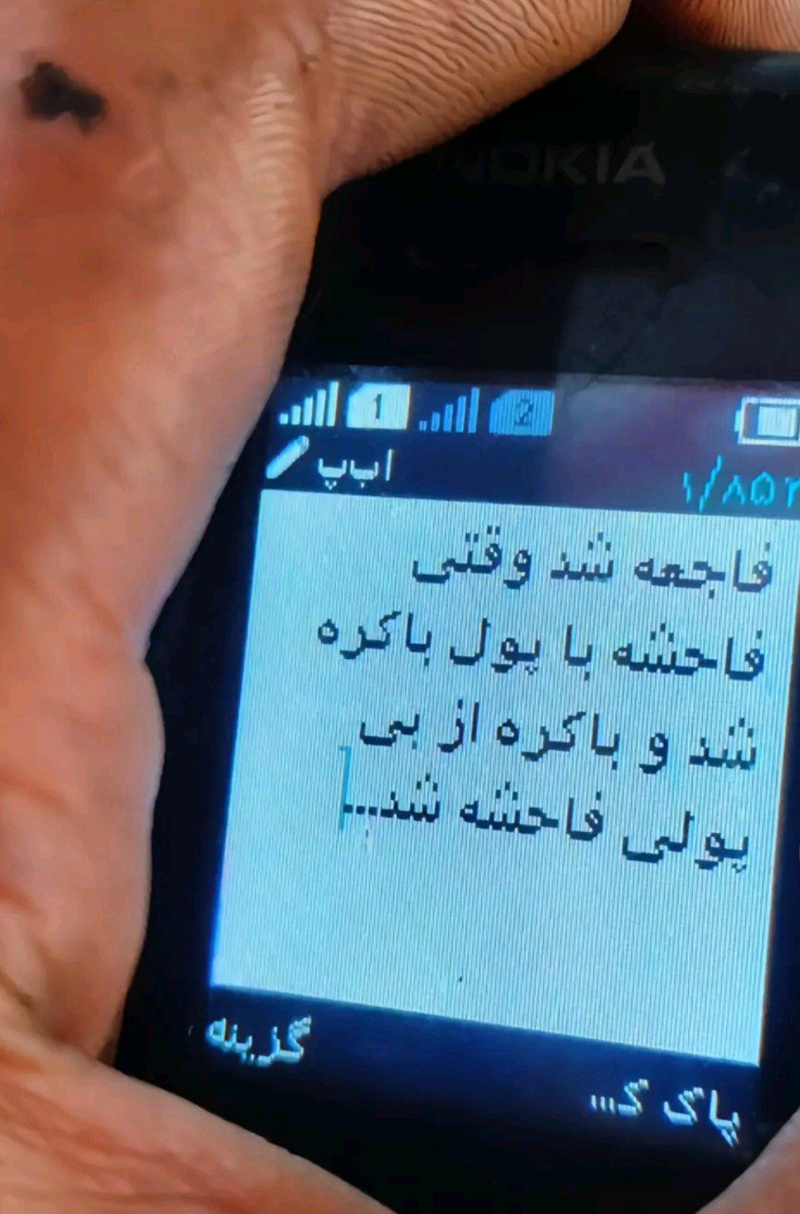 NOKIA
1 2
ابپ
۱/۸۵۲
فاجعه شد وقتی
فاحشه با پول باکره
شد و باکره از بی
پولی فاحشه شد...
گزینه
پاک ک...